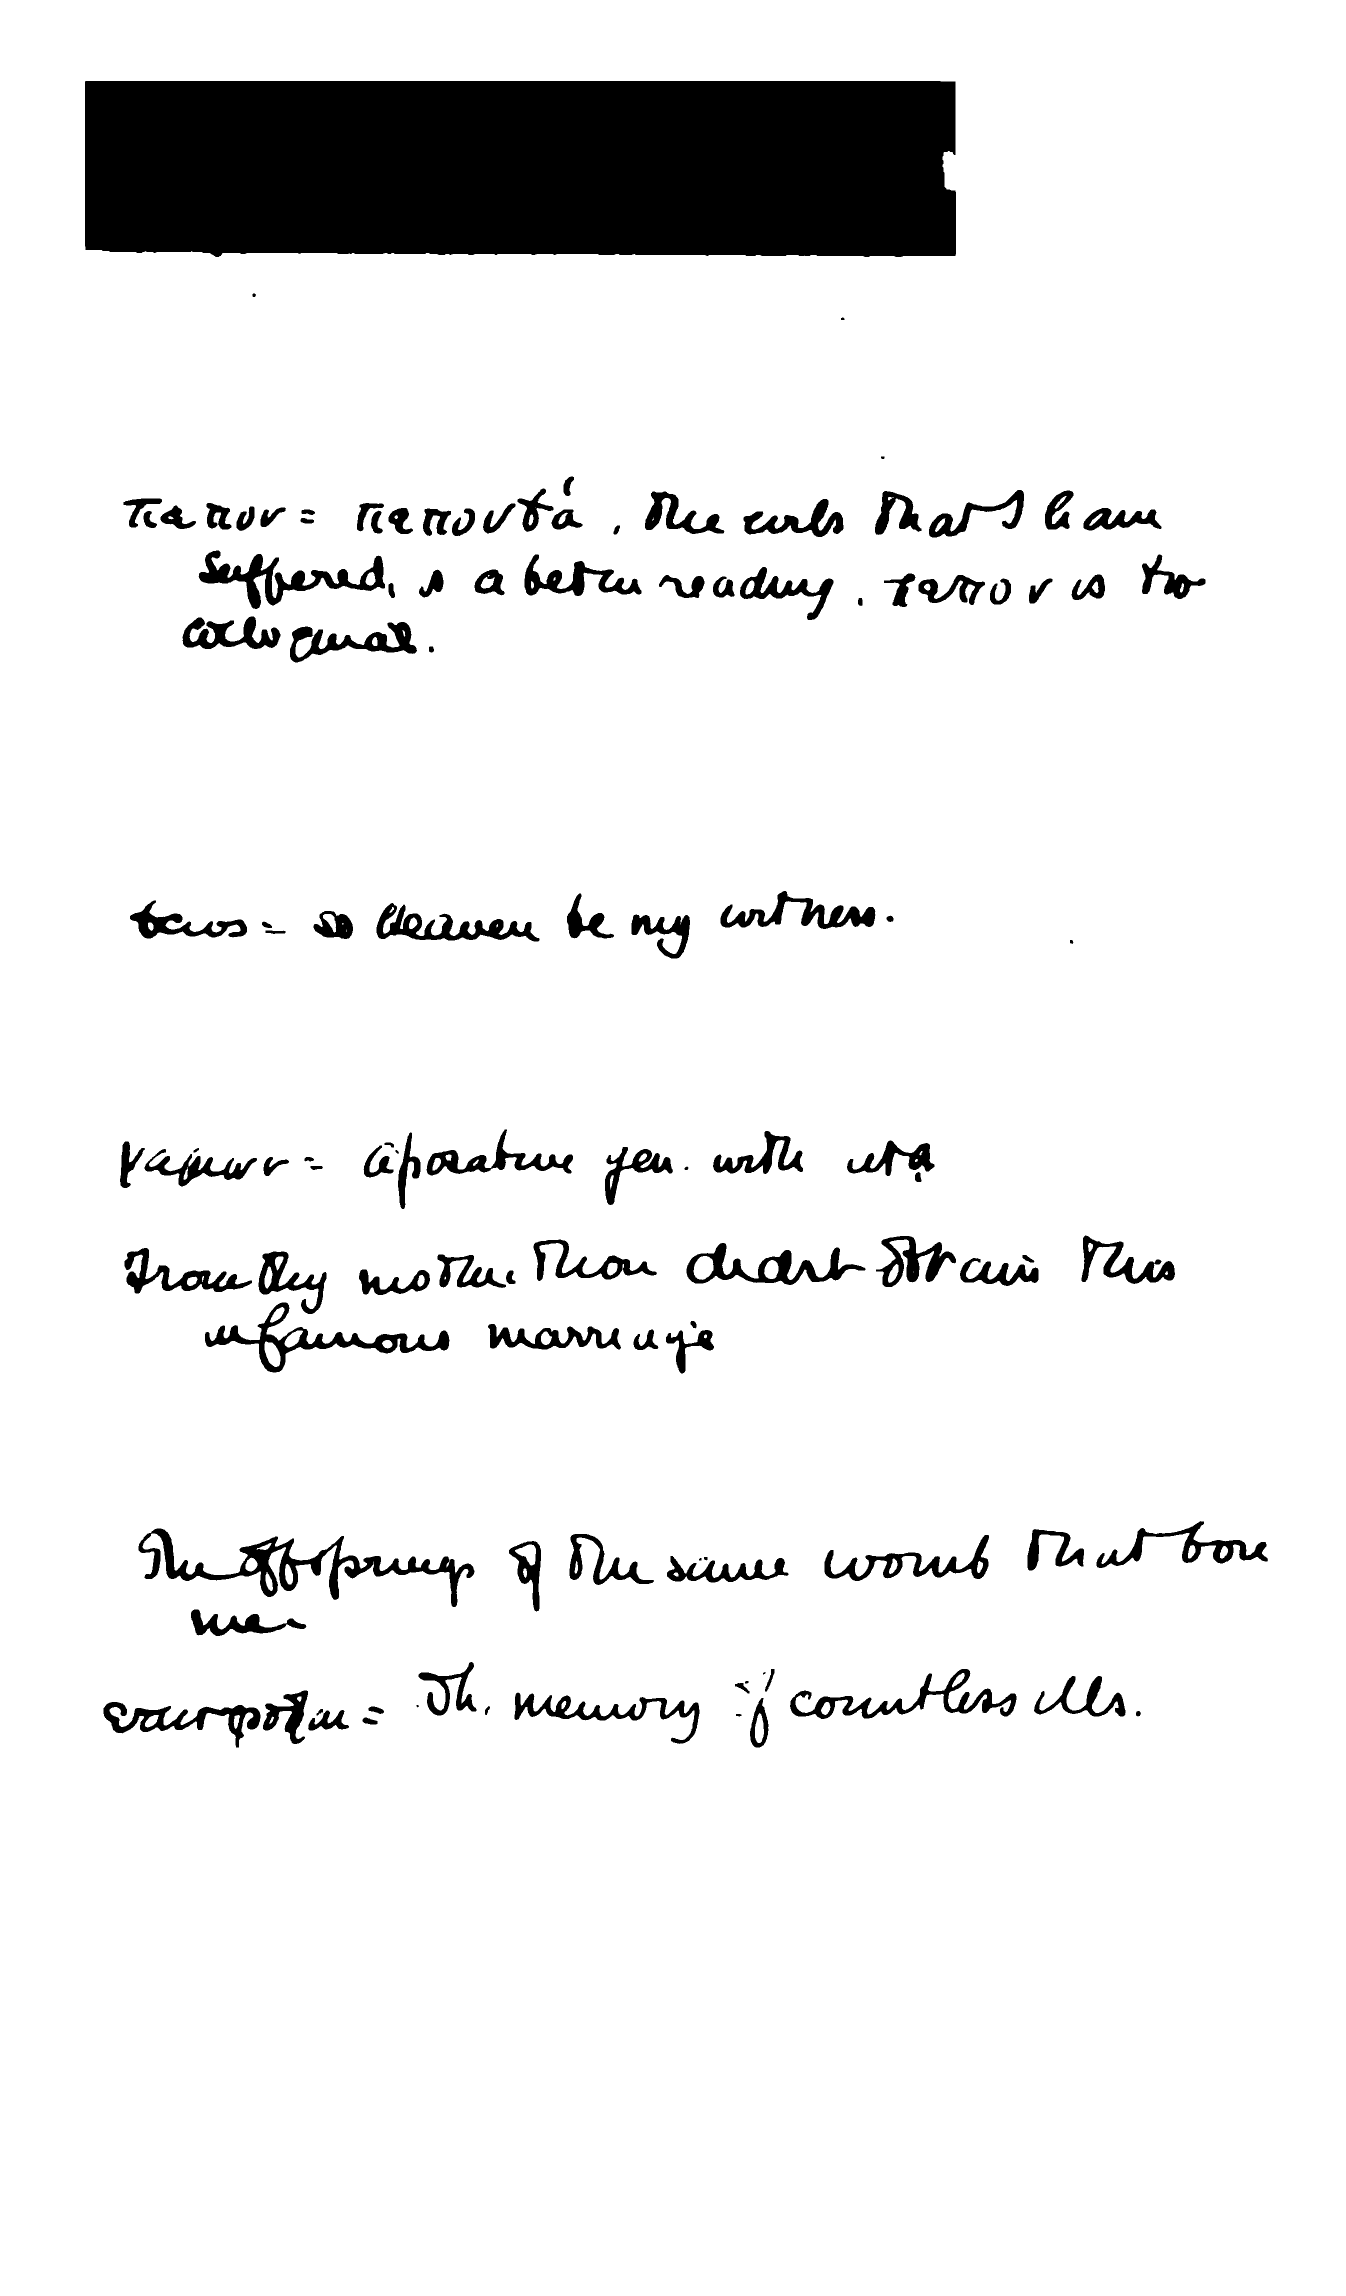 παπον = πεπονθά, the evils that I have
suffered, is a better reading.        is too
colloquial.
so Heaven be my witness.
γαμων = ablative gen. with
From thy mother thou didst obtain this
infamous marriage
The offspring of the same womb that bore
me
= The memory of countless ills.